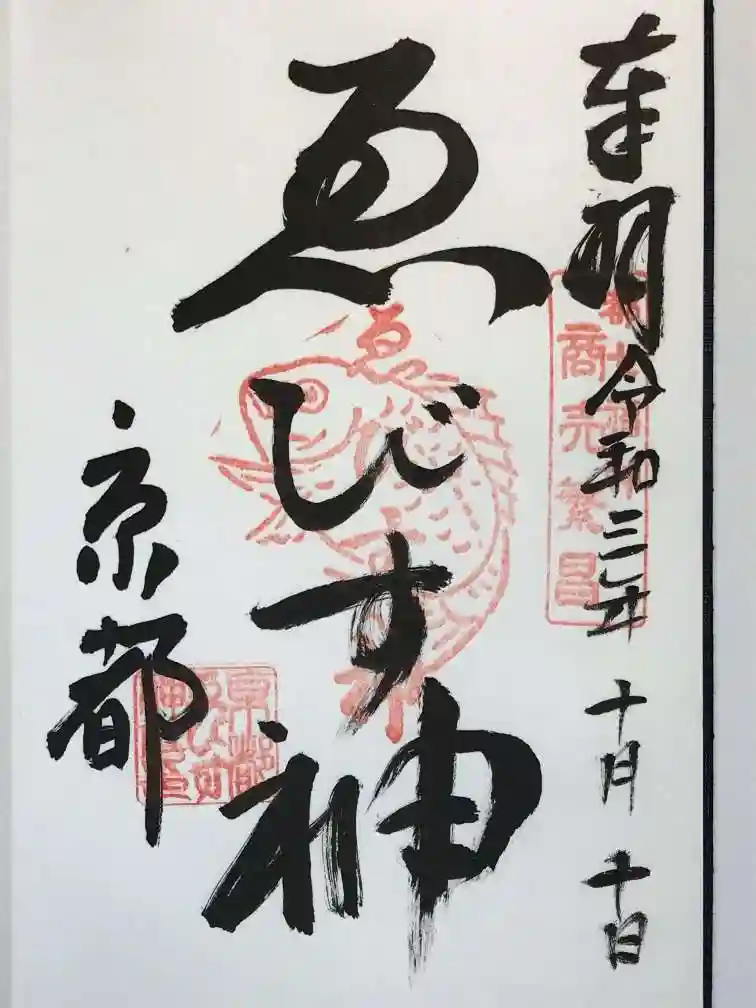 奉拝 令和三年 十月 十日
都七福神
商売繁昌
ゑびす神
ゑ
京都
京都
ゑびす